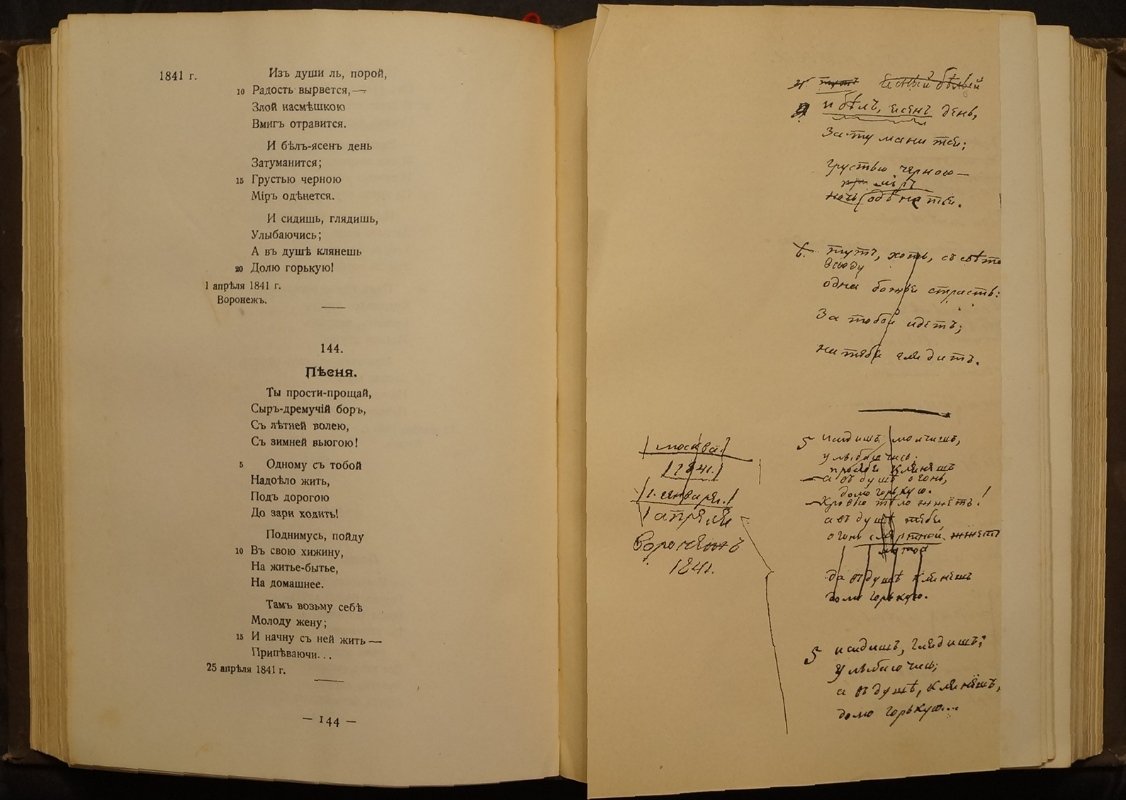 1841 г.
Изъ души ль, порой,
10 Радость вырвется,—
Злой насмѣшкою
Вмигъ отравится.
И бѣлъ-ясенъ день
Затуманится;
15 Грустью черною
Міръ одѣнется.
И сидишь, глядишь,
Улыбаючись;
А въ душѣ клянешь
20 Долю горькую!
1 апрѣля 1841 г.
Воронежъ.
144.
Пѣсня.
Ты прости-прощай,
Сыръ-дремучій боръ,
Съ лѣтней волею,
Съ зимней вьюгою!
5 Одному съ тобой
Надоѣло жить,
Подъ дорогою
До зари ходить!
Поднимусь, пойду
10 Въ свою хижину,
На житье-бытье,
На домашнее.
Тамъ возьму себѣ
Молоду жену;
15 И начну съ ней жить —
Припѣваючи...
25 апрѣля 1841 г.
— 144 —
и бѣлъ, ясенъ день,
грустью черною—
міръ
тутъ, хоть,
всюду
одна
За тобой идетъ;
москва
1841.
1. января.
1 апреля
Воронежъ
1841.
5 исидишь, молчишь,
улыбаючись;
а въ душѣ огонь,
долю горькую.
а въ душѣ
да въ душѣ клянешь
долю горькую.
5 исидишь, глядишь;
улыбаючись;
а въ душѣ, клянешь,
долю горькую...